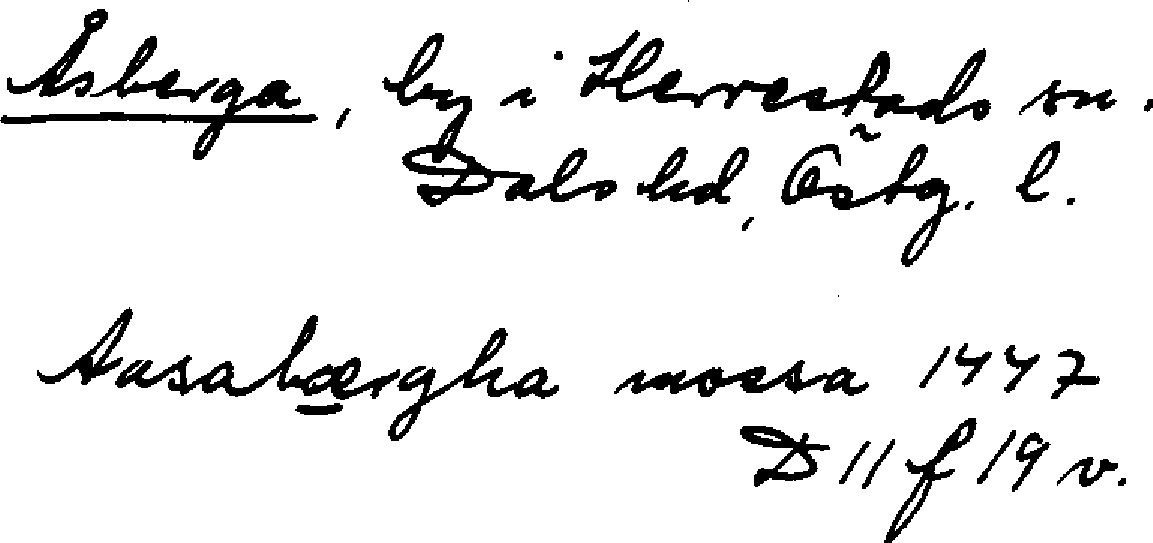 Åsberga, by i Herrestads sn.
Dals hd, Östg. l.
Aasabærgha mossa 1447
D 11 f 19 v.